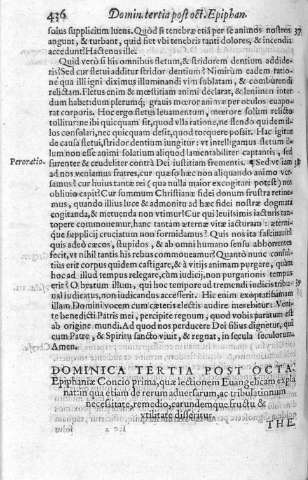 436 Domin. tertia post oct. Epiphan.
solus supplicitum luens. Quòd si tenebræ etiā per se animos nostros 37
angunt, & turbant, quid est vbi tenebris tanti dolores, & incendia
accedunt? Hactenus ille.
Quid verò si his omnibus fletum, & stridorem dentium addide-
ris? Sed cur fletui additur stridor dentium? Nimirum eadem ratio-
ne qua illi igni diximus illuminandi vim sublatam, & comburendi
relictam. Fletus enim & mœstitiam animi declarat, & leniment inter
dum habet: dum plerumq; graris mœror animæ per oculos euapo-
rat corporis. Hoc ergo fletus leuamentum, mœrore solùm relicto
tollitur: ibi quicquam sit, quod vlla ratione, ne flendo quidem il-
los consolari, nec quicquam desit, quod torquere possit. Hac igitur
de causa fletui, stridor dentium iungitur: vt intelligamus fletum il-
lum non esse animi solatium aliquod lamentabiliter captantis, sed
Peroratio. furenter & crudeliter contrà Dei iustitiam frementis. ¶ Sed ve iam 38
ad nos veniamus fratres, cur quæso hæc non aliquando animo ver-
samus? cur huius tantæ rei (qua nulla maior excogitari potest) nos
obliuio capit? Cur summum Christianæ fidei donum frustra retine-
mus, quando illius luce & admonitu ad hæc fidei nostræ dogmata
cogitanda, & metuenda non vtimur? Cur qui leuissimis iacturis tan-
topere commouemur, hanc tantam æternæ vitæ iacturam: æternū-
que supplicij cruciatum non formidamus? Quis nos ita fascinauit
quis adeò cæcos, stupidos, & ab omni humano sensu abhorrentes
fecit, vt nihil tantis his rebus commoueamur? Quantò nunc consul-
tius erit corpus quidem castigare, & à vitijs animam purgare, quàm
hoc ad illud tempus relegare, cùm iudicij, non purgationis tempus
erit? O beatum illum, qui hoc tempore ad tremendi iudicis tribu- 39
nal iudicatus, non iudicandus accesserit. Hic enim exoptatissimam
illam Domini vocem cum cæteris electis audire merebitur: Veni-
te benedicti Patris mei, percipite regnum, quod vobis paratum est
ab origine mundi. Ad quod nos perducere Dei filius dignetur, qui
cum Patre, & Spiritu sancto viuit, & regnat, in sæcula sæculorum.
Amen.
DOMINICA TERTIA POST OCTA.
Epiphaniæ Concio prima, quæ lectionem Euangelicam expla
nat: in qua etiam de rerum aduersarum, ac tribulationum
necessitate, remedio, earundemque fructu &
vtilitate disseritur.
THE.